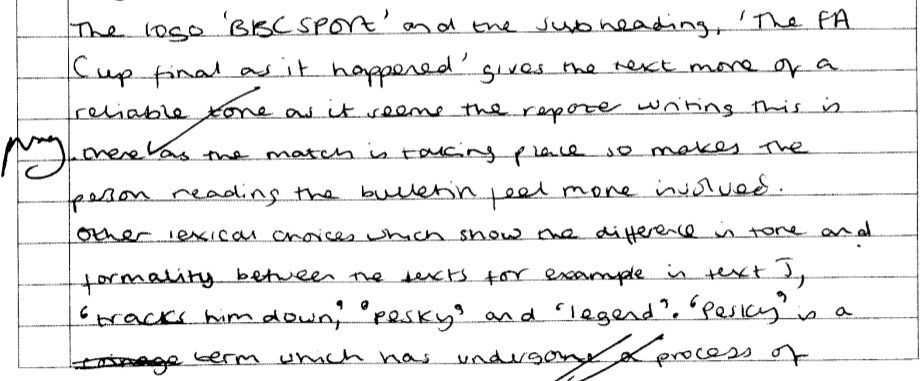 The logo 'BBC SPORT' and the subheading, 'The FA
Cup final as it happened' gives the text more of a
reliable tone as it seems the repote writing this is
there as the match is taking place so makes the
person reading the bulletin feel more involved.
Other lexical choices which show the difference in tone and
formality between the texts for example in text J,
'tracks him down,' 'pesky' and 'legend'. 'Pesky' is a
term which has undergone a process of